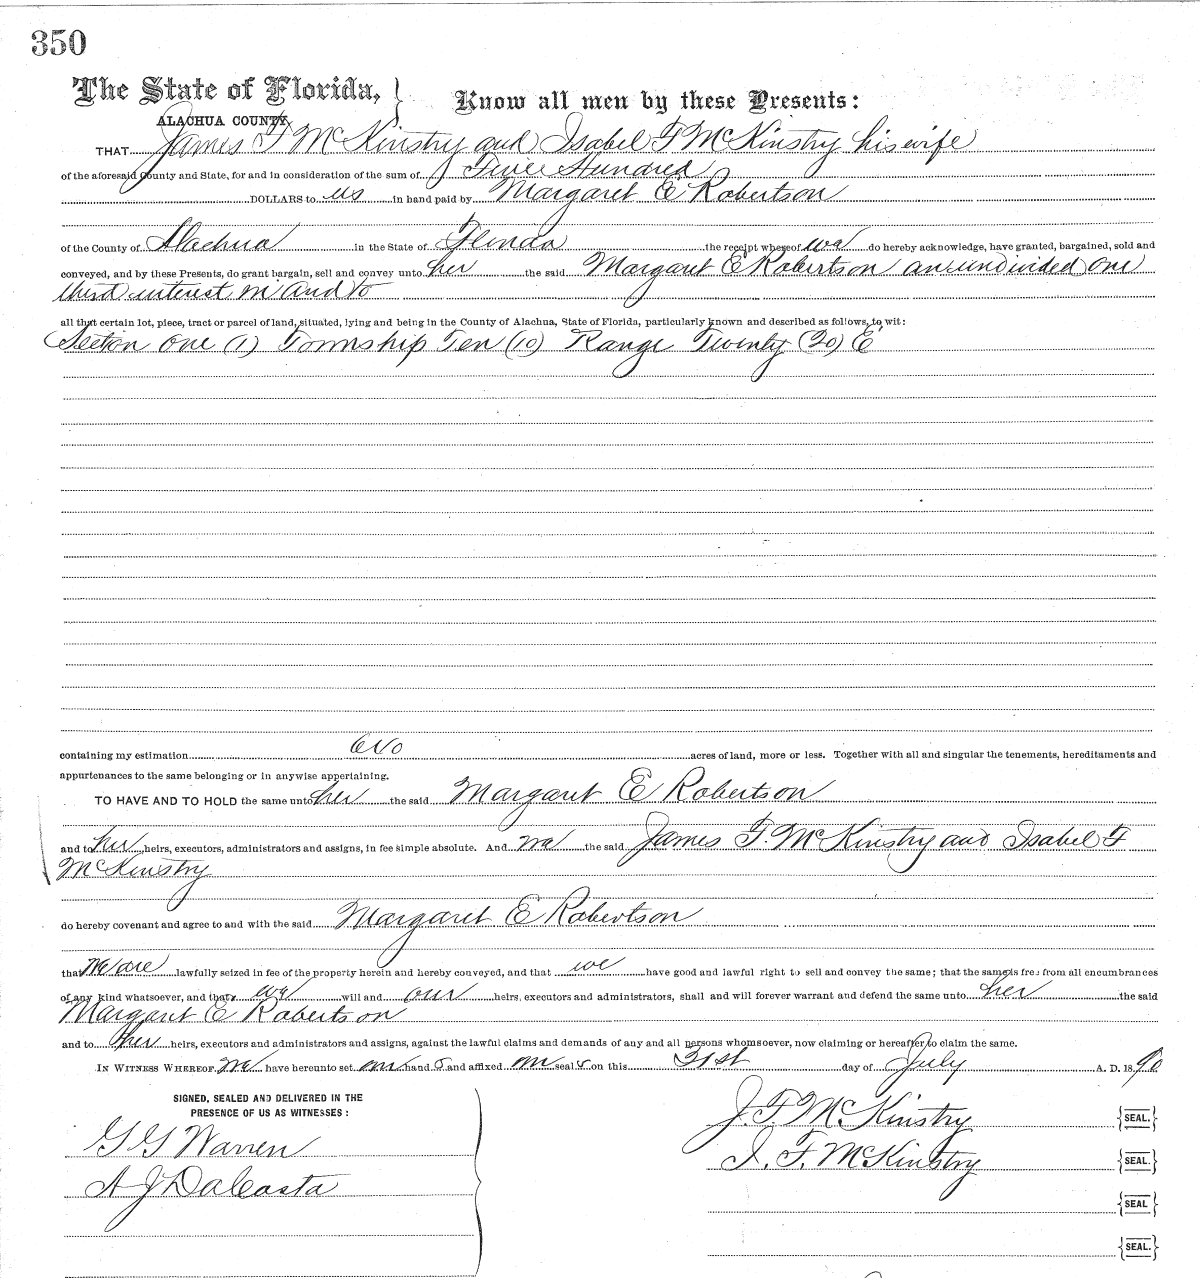 350
The State of Florida, } Know all men by these Presents:
ALACHUA COUNTY
THAT James F McKinstry and Isabel F McKinstry his wife
of the aforesaid County and State, for and in consideration of the sum of Five Hundred
DOLLARS to us in hand paid by Margaret E Robertson
of the County of Alachua in the State of Florida the receipt whereof we do hereby acknowledge, have granted, bargained, sold and
conveyed, and by these Presents, do grant bargain, sell and convey unto her the said Margaret E Robertson an undivided one
third interest in and to
all that certain lot, piece, tract or parcel of land, situated, lying and being in the County of Alachua, State of Florida, particularly known and described as follows, to wit:
Section One (1) Township Ten (10) Range Twenty (20) E
containing my estimation 640 acres of land, more or less. Together with all and singular the tenements, hereditaments and
appurtenances to the same belonging or in anywise appertaining.
TO HAVE AND TO HOLD the same unto her the said Margaret E Robertson
and to her heirs, executors, administrators and assigns, in fee simple absolute. And we the said James F. McKinstry and Isabel F
McKinstry
do hereby covenant and agree to and with the said Margaret E Robertson
that we are lawfully seized in fee of the property herein and hereby conveyed, and that we have good and lawful right to sell and convey the same; that the same is free from all encumbrances
of any kind whatsoever, and that we will and our heirs, executors and administrators, shall and will forever warrant and defend the same unto her the said
Margaret E Robertson
and to her heirs, executors and administrators and assigns, against the lawful claims and demands of any and all persons whomsoever, now claiming or hereafter to claim the same.
IN WITNESS WHEREOF we have hereunto set our hand s and affixed our seal s on this 31st day of July A. D. 1890
SIGNED, SEALED AND DELIVERED IN THE
PRESENCE OF US AS WITNESSES:
J. F. McKinstry {SEAL.}
G G Warren
I. F. McKinstry {SEAL.}
A J DaCosta
{SEAL}
{SEAL.}